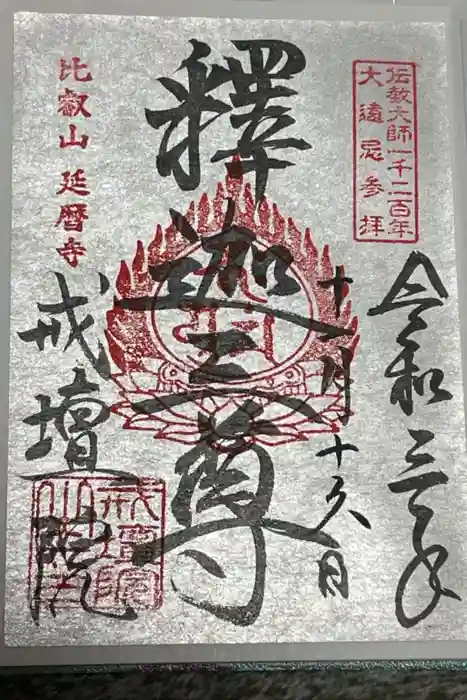 伝教大師一千二百年
大遠忌参拝
令和三年
十一月十九日
釋迦三尊
比叡山 延暦寺
戒壇院